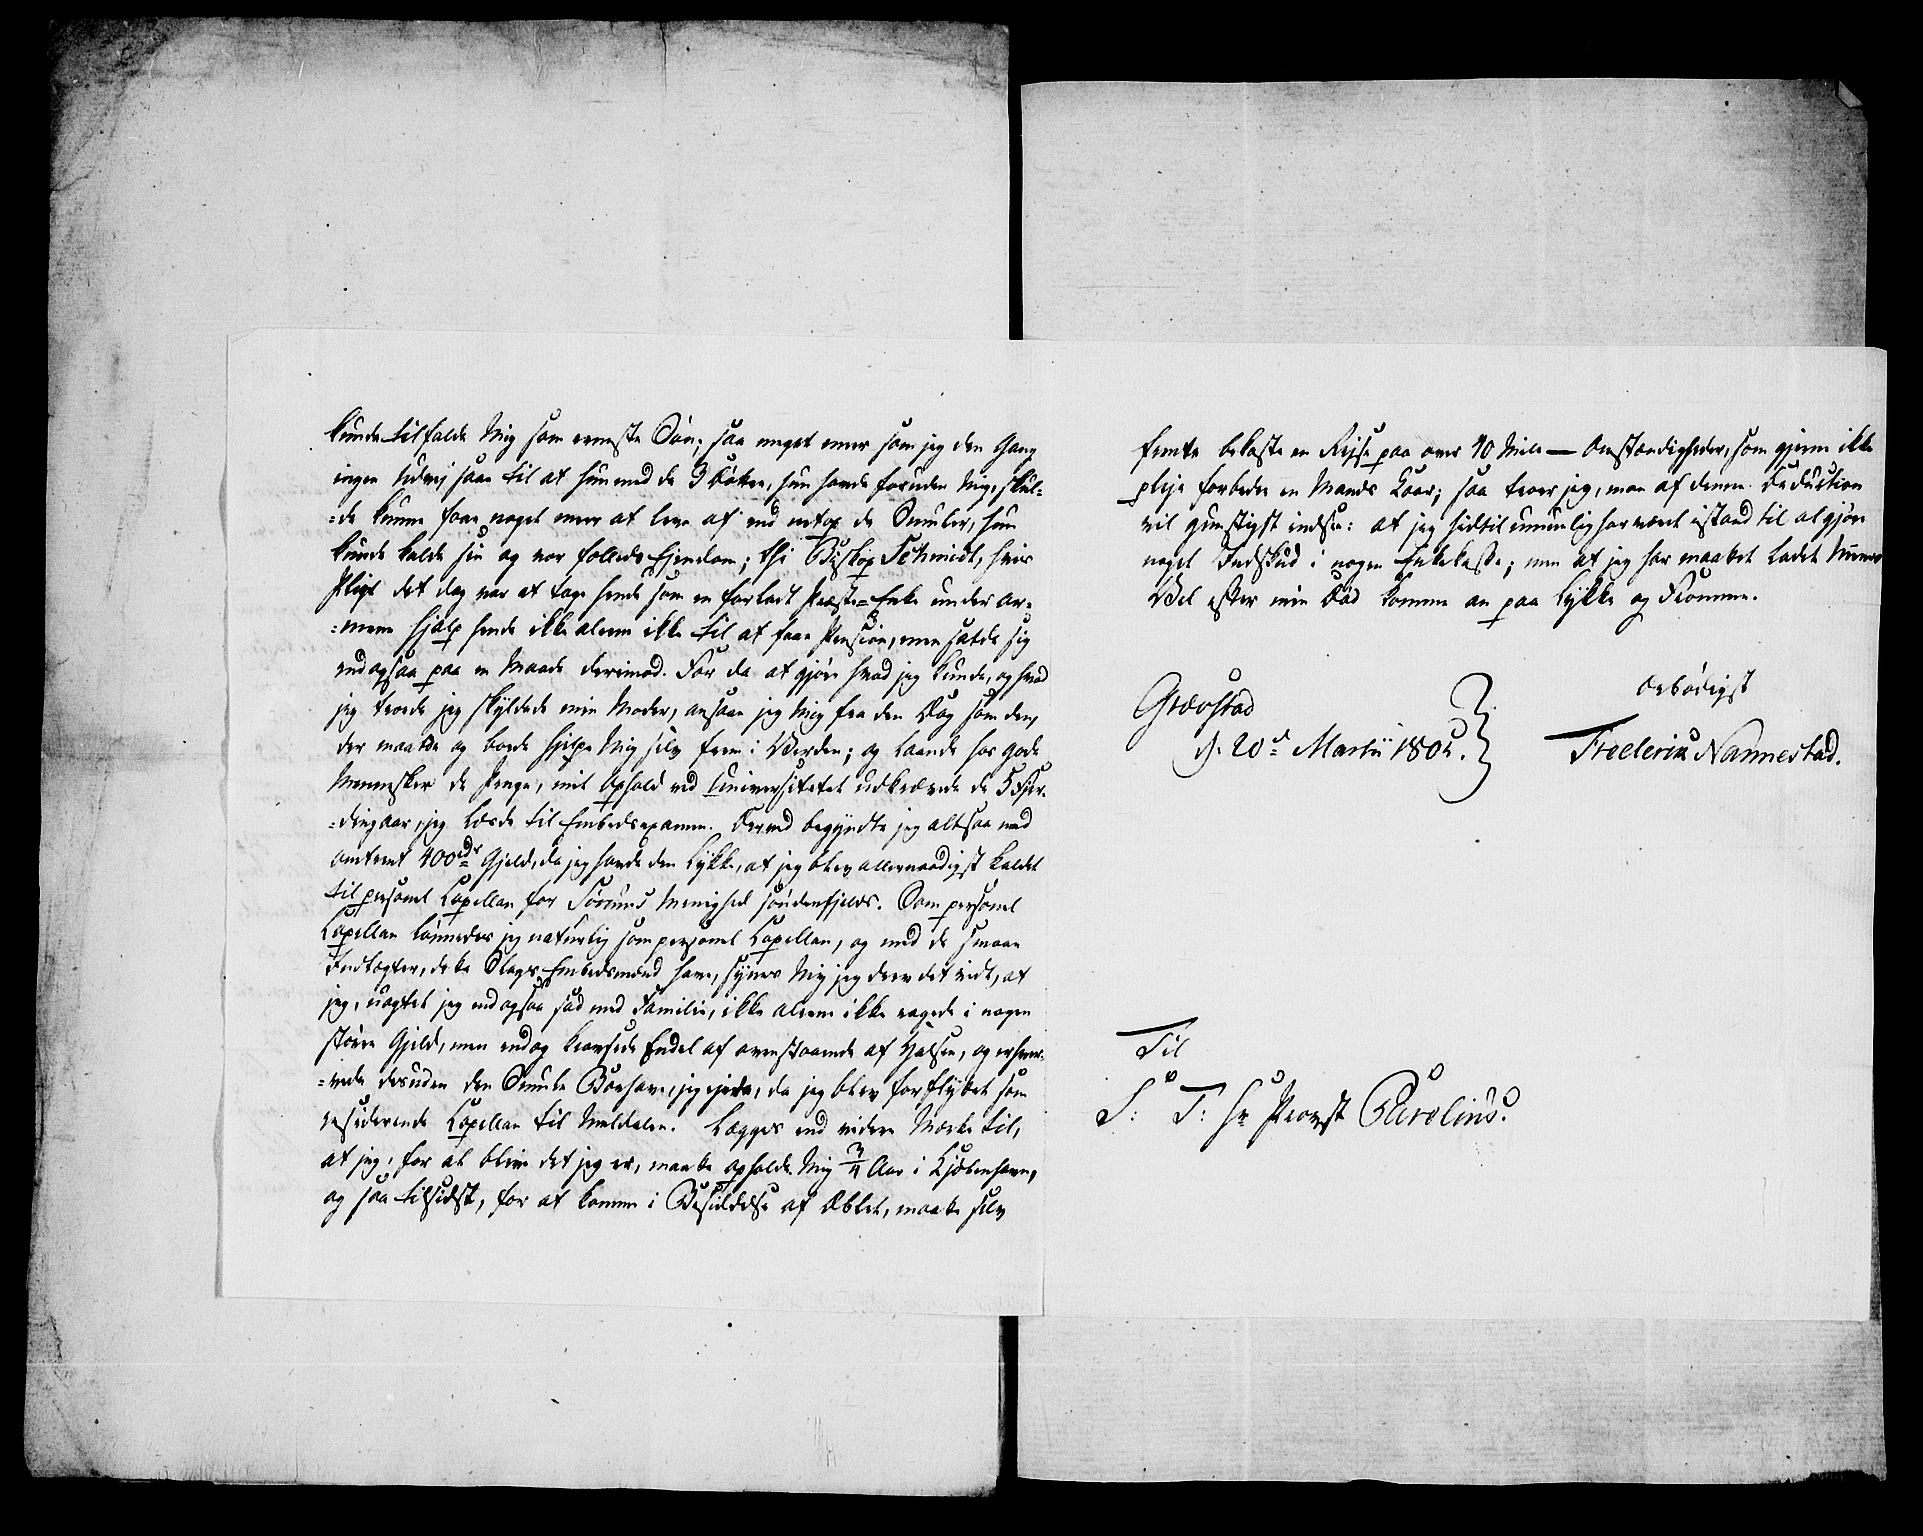 kunde tilfalde Mig som eneste Søn; saa meget meer som jeg den Gang
ingen Udvej saae til at hun med de 3 Døttre, hun havde foruden Mig, skul-
=de kunne faae noget meer at leve af end netop de Smuler, hun
kunde kalde sin og vor fælleds Ejendom; thi Biskop Schmidt, hvis
Pligt det dog var at tage hende som en forladt Præste=Enke under Ar-
=mene hjalp hende ikke alene ikke til at faae Pension, men satde sig
endogsaa paa en Maade derimod. For da at gjøre hvad jeg kunde, og hvad
jeg troede jeg skyldede min Moder, ansaae jeg Mig fra den Dag som den,
der maatte og burde hjelpe Mig selv frem i Verden; og laante hos gode
Mennesker de Penge, mit Ophold ved Universitetet udkrævede de 5 Fjer-
=dingaar, jeg læste til Embedsexamen. Derved begyndte jeg altsaa med
omtrent 400 rdr Gjeld, da jeg havde den Lykke, at jeg blev allernaadigst kaldet
til personel Capellan for Sørums Menighed søndenfjelds. Som personel
Capellan lønnedes jeg naturlig som personel Capellan, og med de smaae
Indtægter, dette Slags Embedsmænd have, synes Mig jeg drev det vidt, at
jeg, uagtet jeg endogsaa sad med Familie, ikke alene ikke ragede i nogen
større Gjeld, men endog krævsede Endel af ovenstaaende af Halsen, og erhver-
=vede desuden den Smule Boehave, jeg ejede, da jeg blev forflyttet som
residerende Capellan til Meldalen. Lægges end videre Mærke til,
at jeg, for at blive det jeg er, maatte opholde Mig 3/4 Aar i Kjøbenhavn,
og saa tilsidst, for at komme i Besiddelse af Æblet, maatte selv
femte bekoste en Rejse paa over 40 Mile — Omstændigheder, som gjerne ikke
pleje forbedre en Mands Kaar; saa troer jeg, man af denne Deduction
vil gunstigst indsee: at jeg hidtil umuelig har været istand til at gjøre
noget Indskud i nogen Enkekasse; men at jeg har maattet ladet Mines
Vel efter min Død komme an paa Lykke og Fromme.
Grævstad
d. 20d Martii 1802.
Ærbødigst
Frederik Nannestad.
Til
S: T: Hr Provst Parelius.